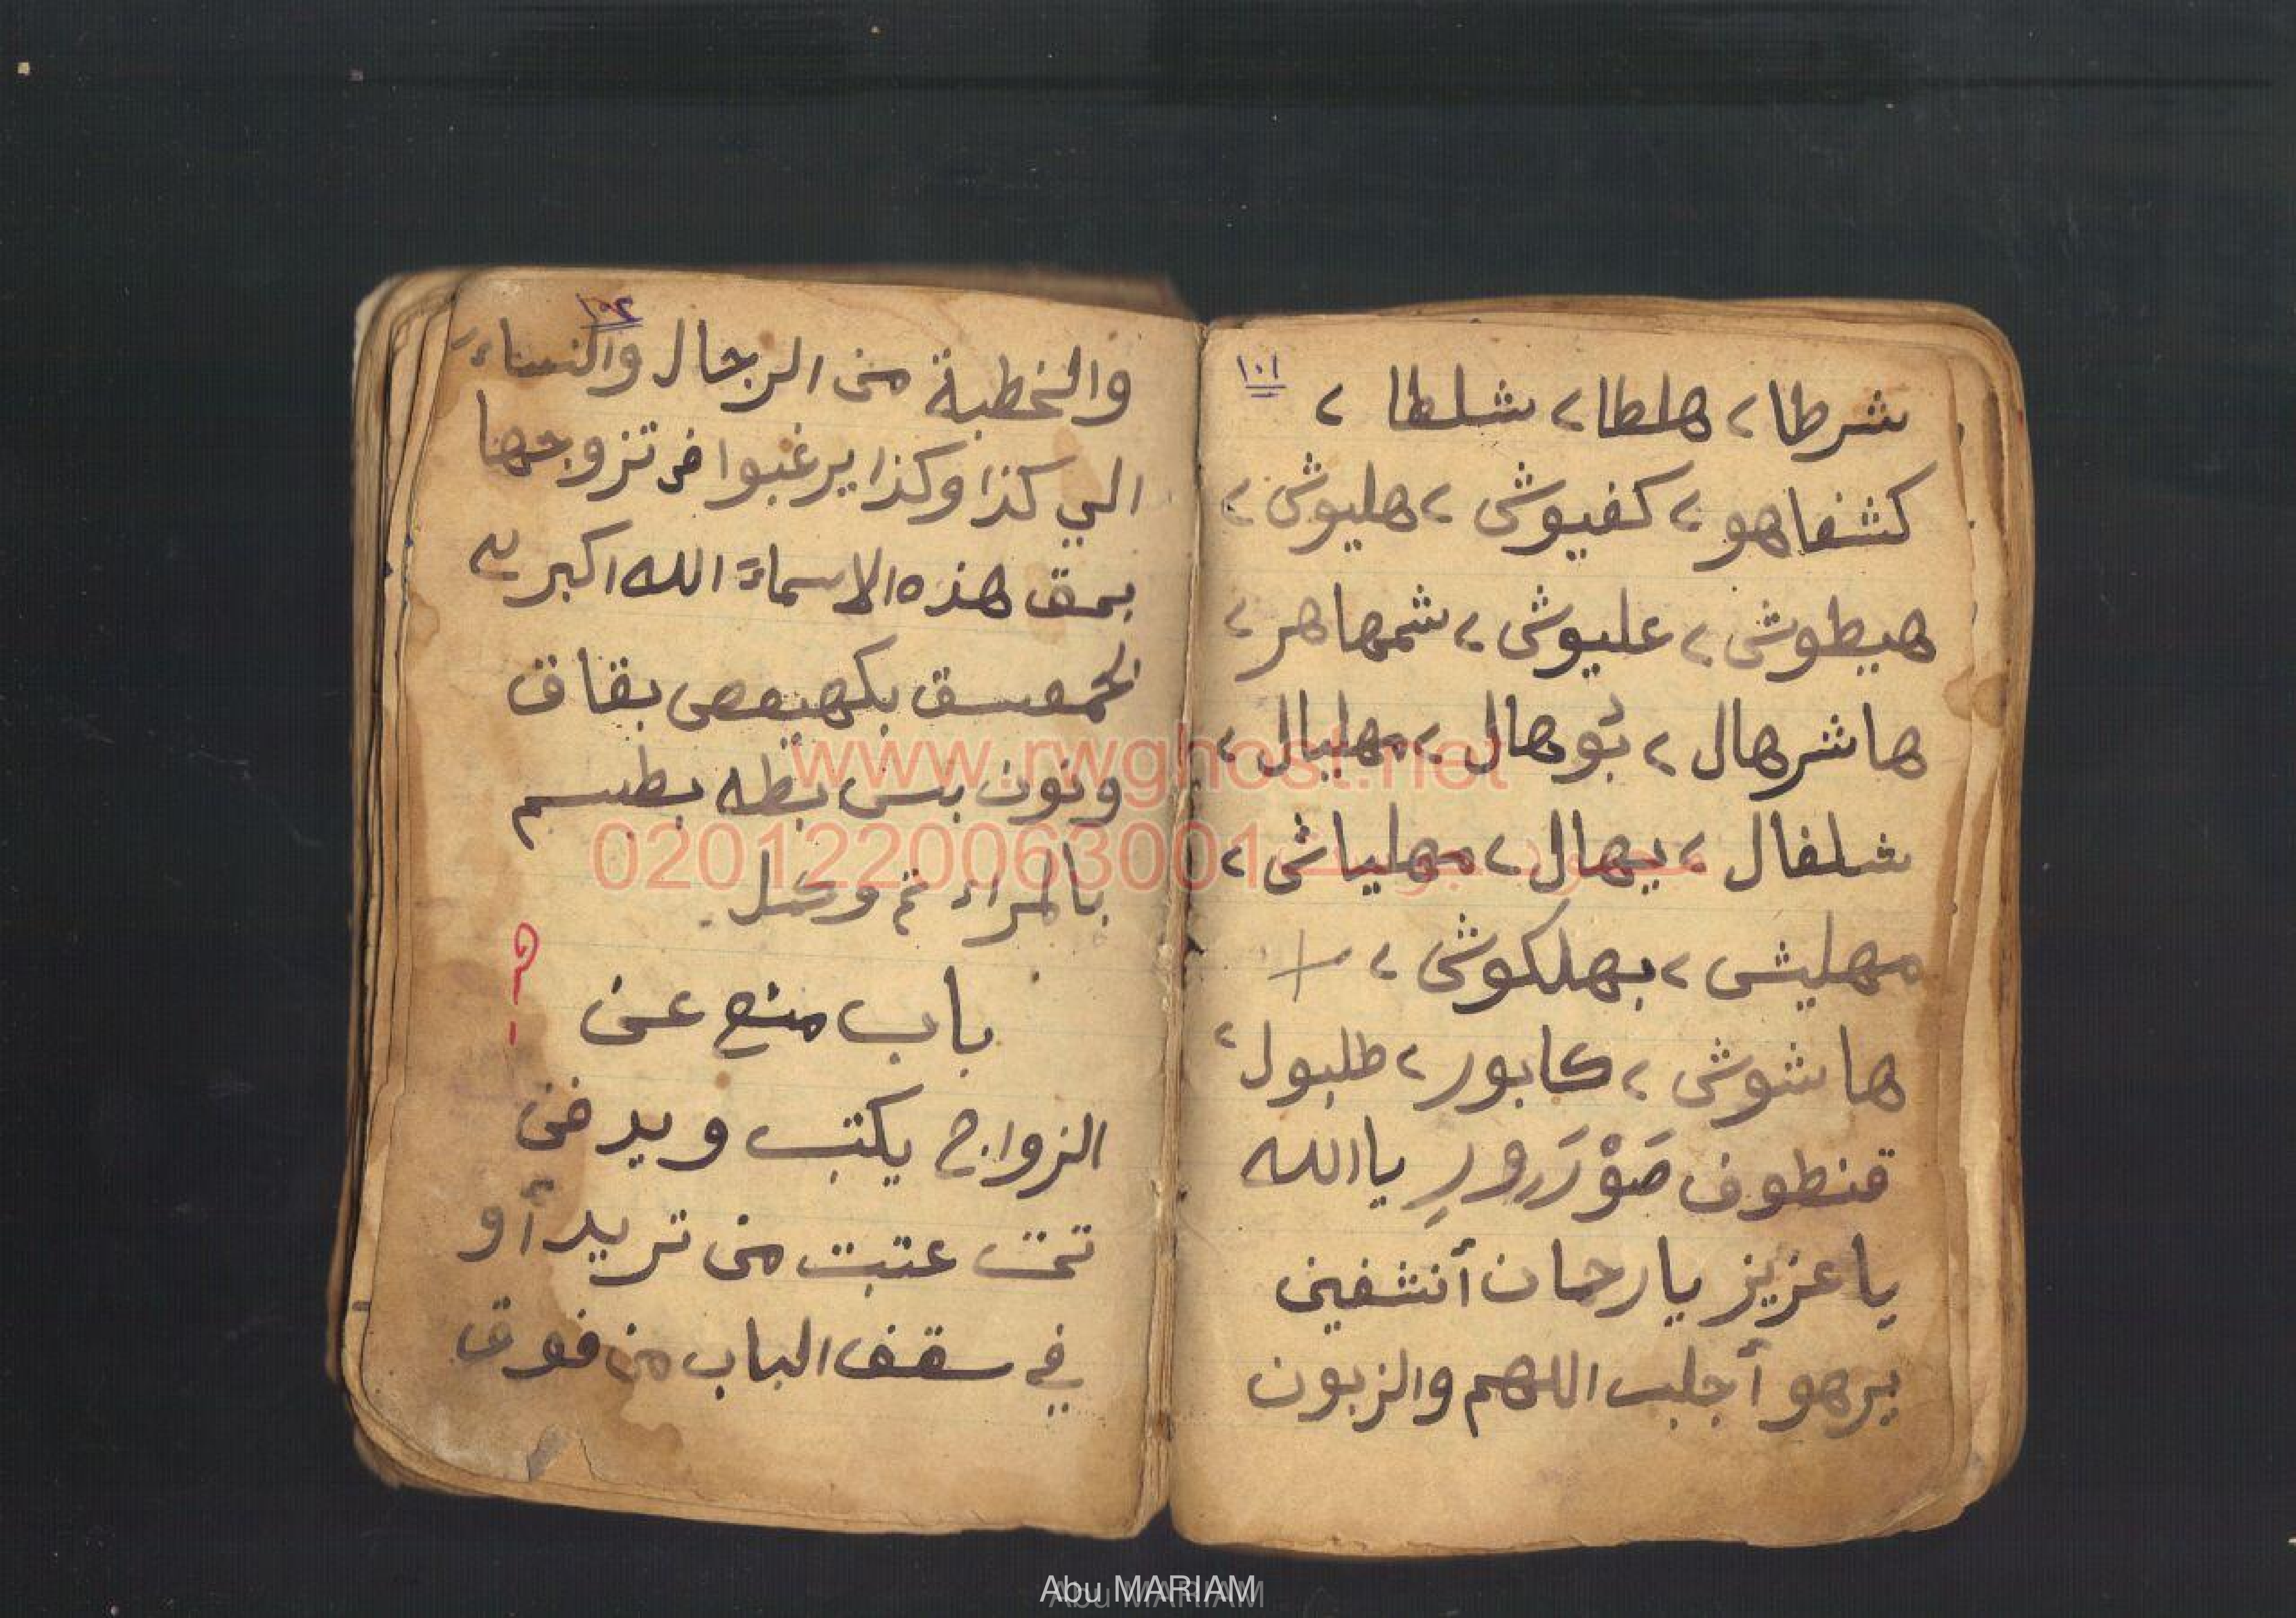 ١٠١
شرطا ٢ هلطا ٢ شلطا ٢
كشفاهو ٢ كفيوش ٢ هليوش ٢
هيطوش ٢ عليوش ٢ شمهاهر ٢
هاشرهال ٢ بوهال ٢ مهليال ٢
شلفال ٢ يهال ٢ مهلياش ٢
مهليش ٢ بهلكوش ٢
هاشوش ٢ كابور ٢ طلبول ٢
قنطوف صَوْرَرورٍ ياالله
يا عزيز يا رحمان أنشفين
يرهو أجلب اللهم والزبون
١٠٢
والخطبة من الرجال والنساء
الي كذا وكذا يرغبوا في تزوجها
بحق هذه الاسماء الله اكبر
بكهيعص بقاف
ونون بس بطه بطسم
بالمراء تم وكمل
باب منع عن
الزواج يكتب ويدفن
تحت عتبت من تريد أو
في سقف الباب من فوق
www.rwghost.net
0201220063001
Abu MARIAM